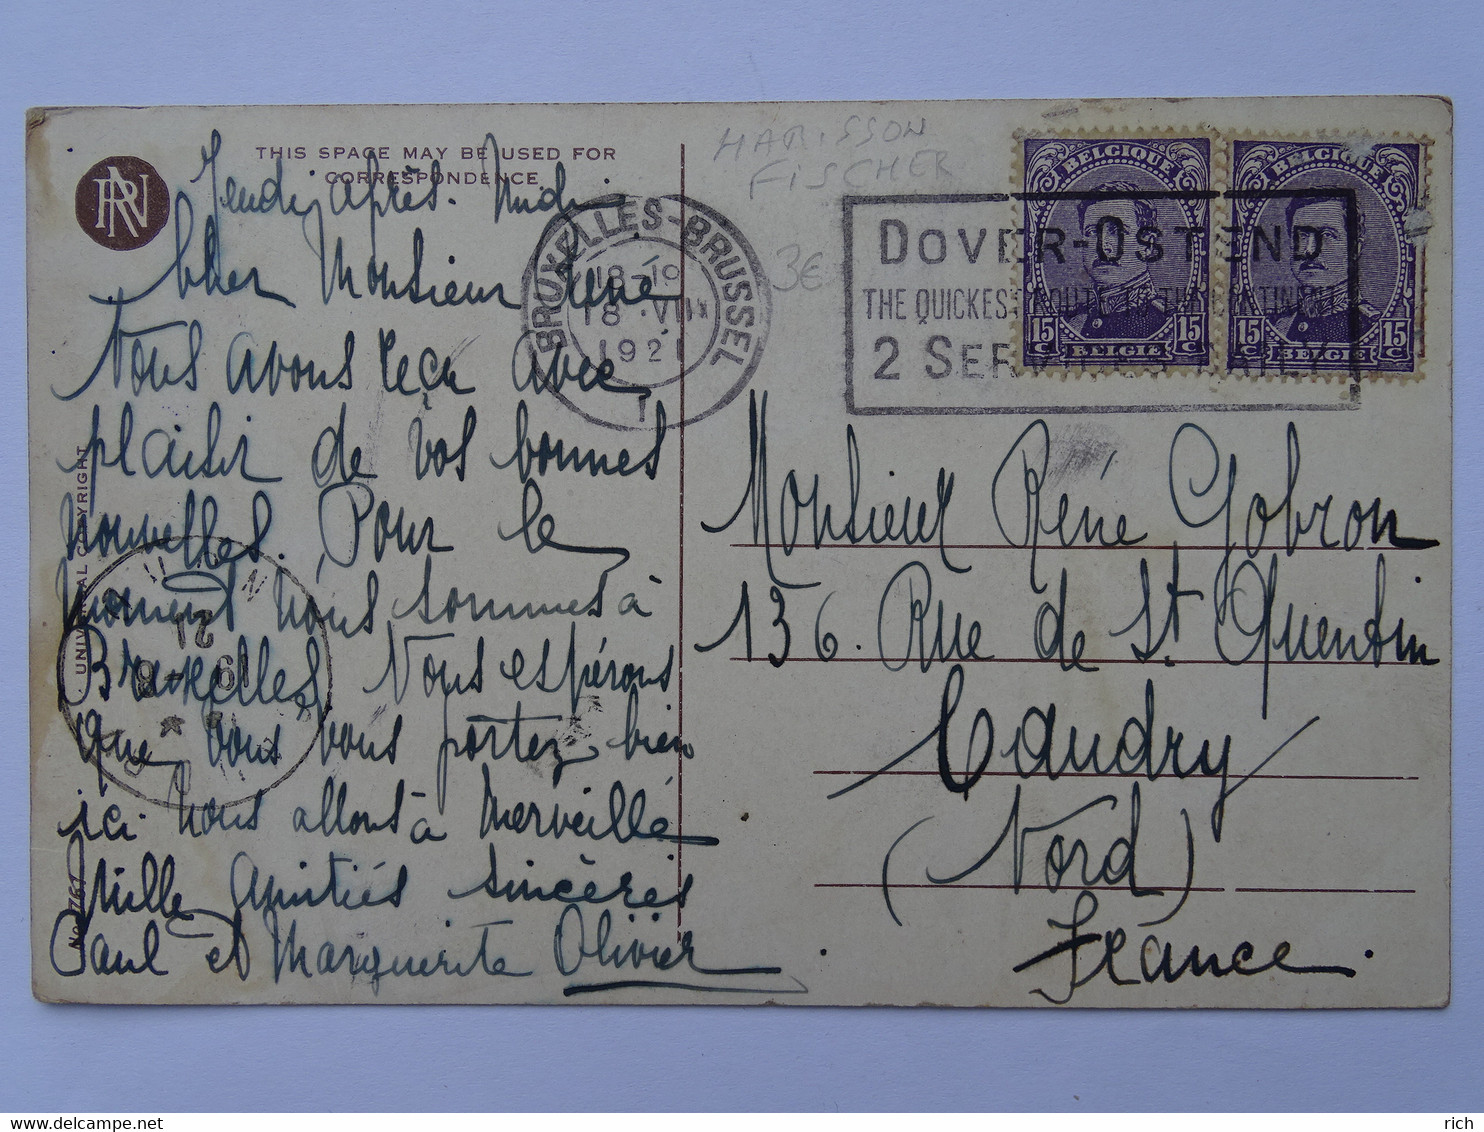 THIS SPACE MAY BE USED FOR
CORRESPONDENCE
RN
Jeudi, après-midi
Cher Monsieur René
Nous avons reçu avec
plaisir de vos bonnes
nouvelles. Pour le
moment nous sommes à
Bruxelles, Nous espérons
que vous vous portez bien
ici nous allons à merveille
Mille amitiés sincères
Paul et Marguerite Olivier
UNIVERSAL COPYRIGHT
No 767
19 - 8
21
HARISSON
FISCHER
3€
BRUXELLES-BRUSSEL
18-19
18 VIII
1921
1
DOVER-OSTEND
THE QUICKEST ROUTE TO THE CONTINENT
2 SERVICES DAILY
BELGIQUE
15 C 15 C
BELGIE
BELGIQUE
15 C 15 C
BELGIE
Monsieur René Gobron
136. Rue de St Quentin
Caudry
(Nord)
France.
rich
www.delcampe.net